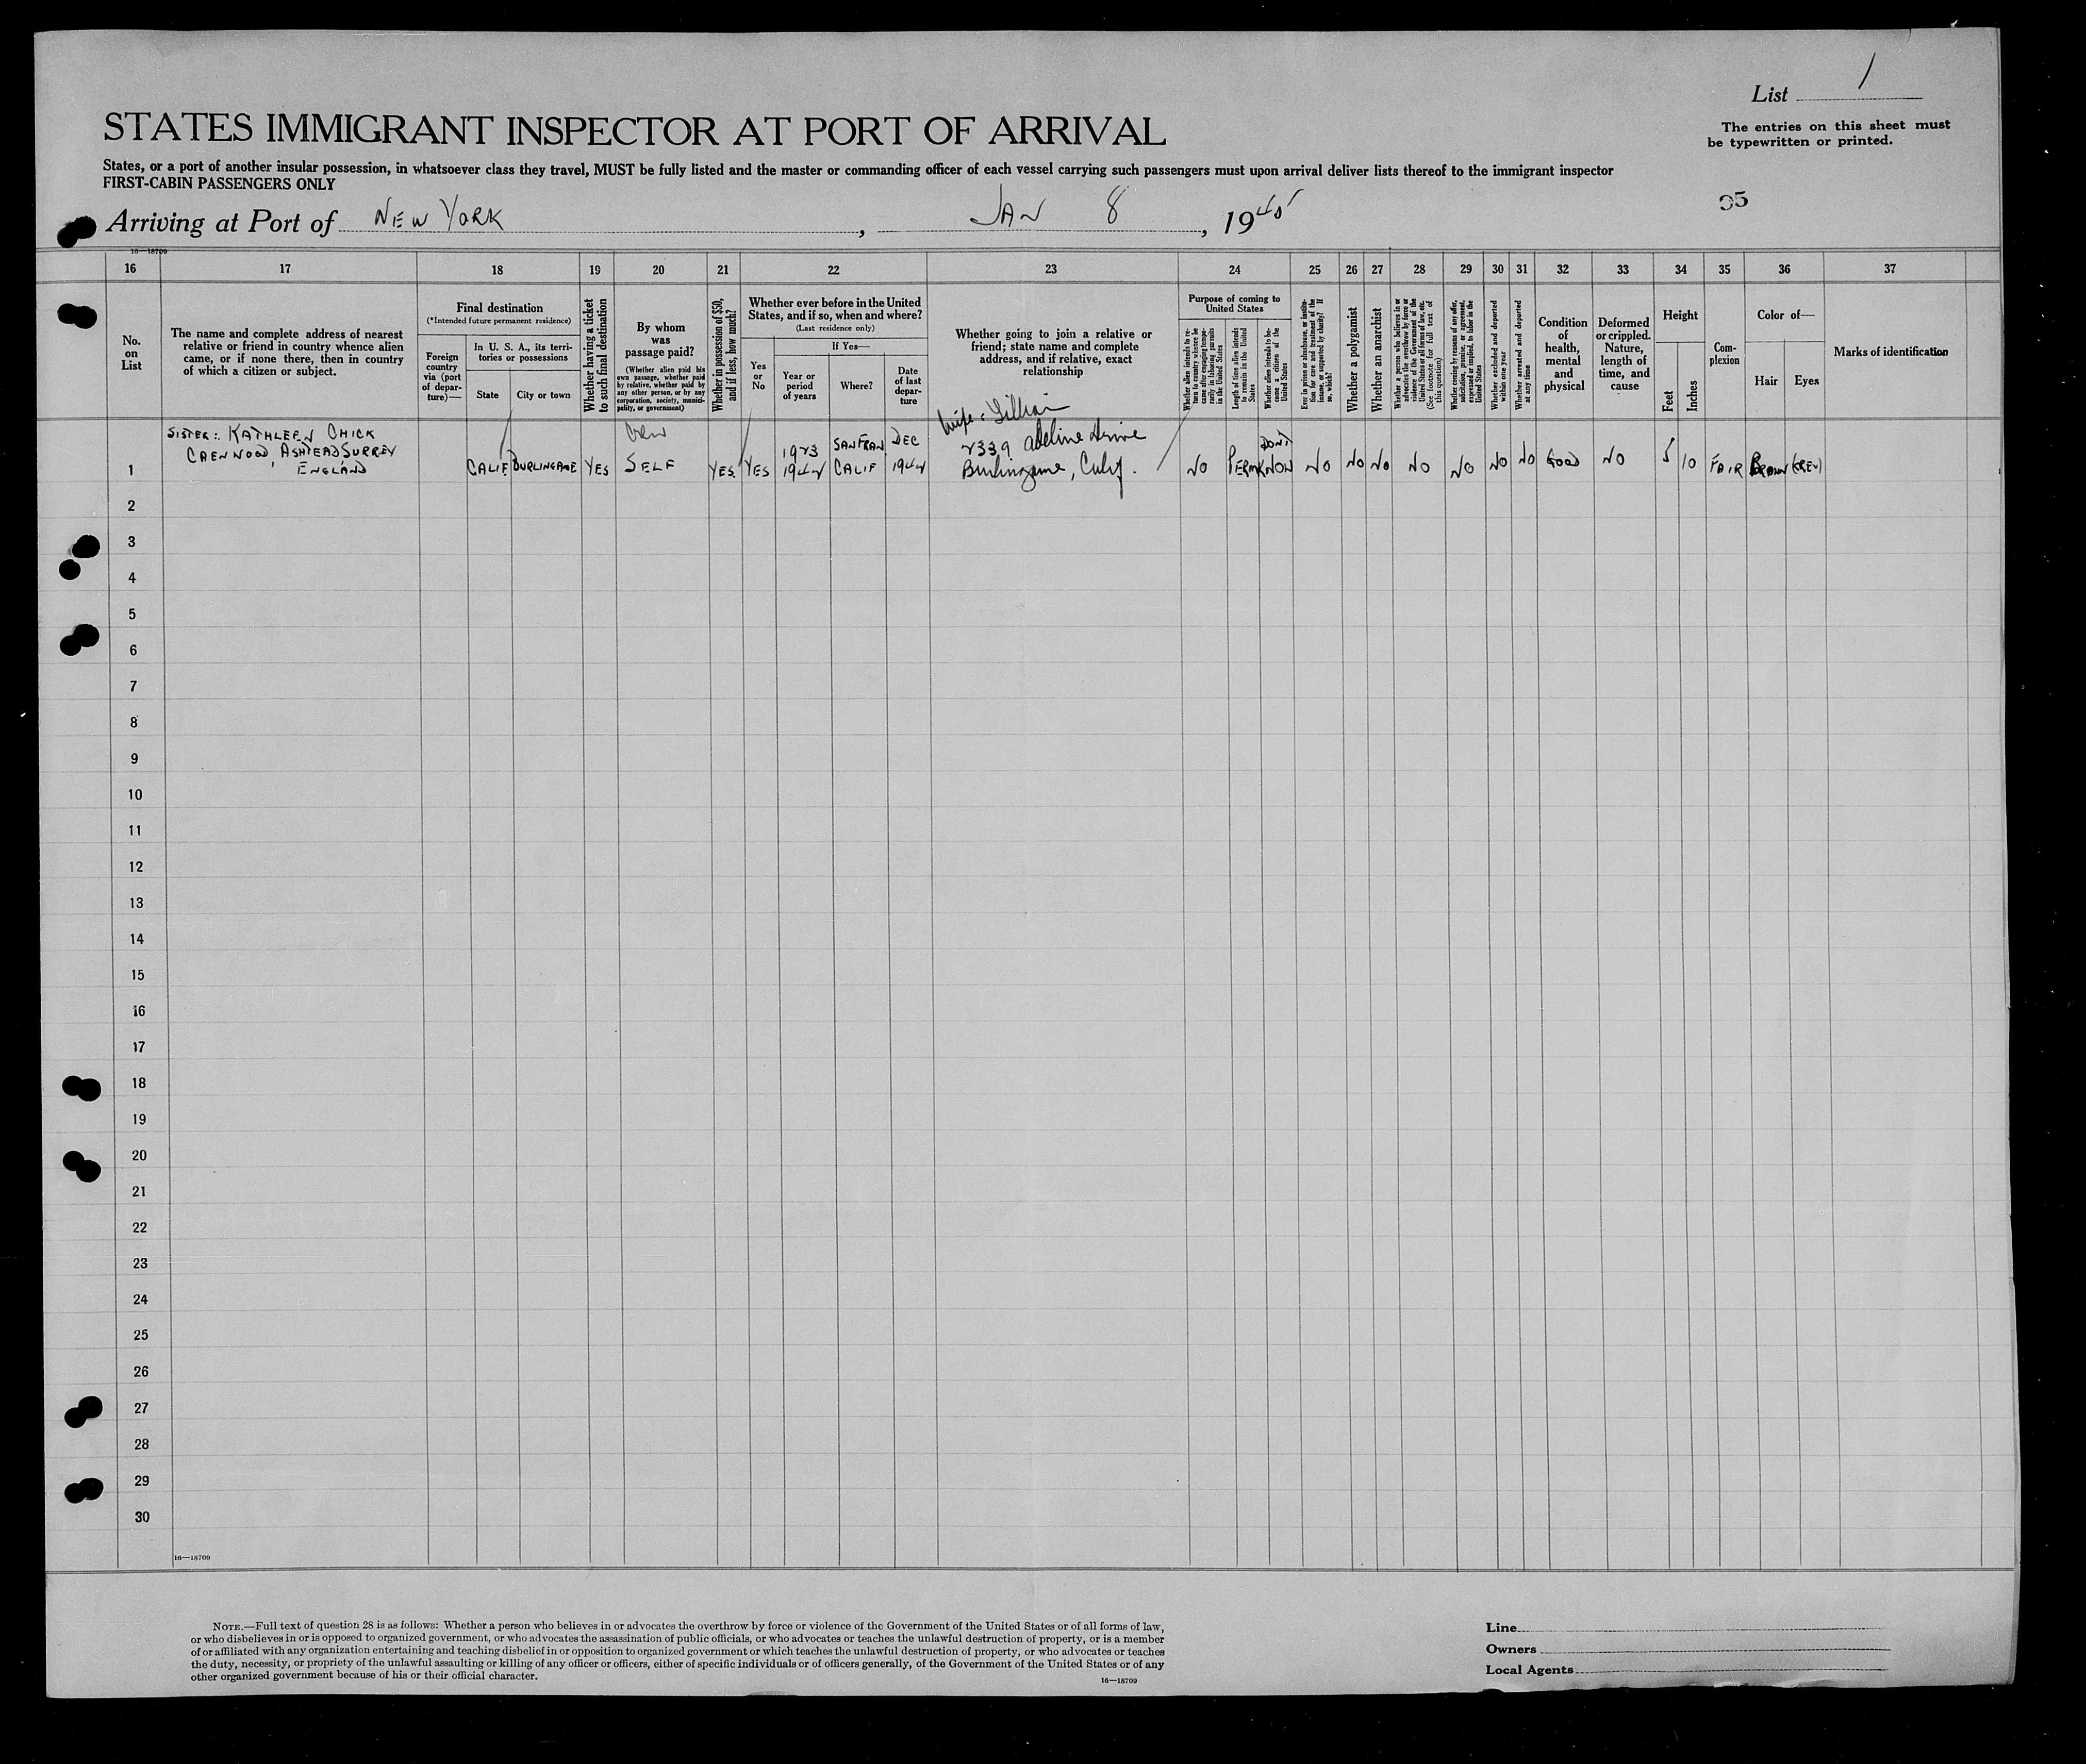 List 1
STATES IMMIGRANT INSPECTOR AT PORT OF ARRIVAL
The entries on this sheet must
be typewritten or printed.
States, or a port of another insular possession, in whatsoever class they travel, MUST be fully listed and the master or commanding officer of each vessel carrying such passengers must upon arrival deliver lists thereof to the immigrant inspector
FIRST-CABIN PASSENGERS ONLY
95
Arriving at Port of NEW YORK, JAN 8, 1945
16—18709
16 17 18 19 20 21 22 23 24 25 26 27 28 29 30 31 32 33 34 35 36 37
No.
on
List
The name and complete address of nearest
relative or friend in country whence alien
came, or if none there, then in country
of which a citizen or subject.
Final destination
(*Intended future permanent residence)
Foreign
country
via (port
of depar-
ture)—
In U. S. A., its terri-
tories or possessions
State
City or town
Whether having a ticket
to such final destination
By whom
was
passage paid?
(Whether alien paid his
own passage, whether paid
by relative, whether paid by
any other person, or by any
corporation, society, munici-
pality, or government)
Whether in possession of $50,
and if less, how much?
Whether ever before in the United
States, and if so, when and where?
(Last residence only)
Yes
or
No
If Yes—
Year or
period
of years
Where?
Date
of last
depar-
ture
Whether going to join a relative or
friend; state name and complete
address, and if relative, exact
relationship
Purpose of coming to
United States
Whether alien intends to re-
turn to country whence he
came after engaging tempo-
rarily in laboring pursuits
in the United States
Length of time alien intends
to remain in the United
States
Whether alien intends to be-
come a citizen of the
United States
Ever in prison or almshouse, or institu-
tion for care and treatment of the
insane, or supported by charity? If
so, which?
Whether a polygamist
Whether an anarchist
Whether a person who believes in or
advocates the overthrow by force or
violence of the Government of the
United States or all forms of law, etc.
(See footnote for full text of
this question)
Whether coming by reasons of any offer,
solicitation, promise, or agreement,
expressed or implied, to labor in the
United States
Whether excluded and deported
within one year
Whether arrested and deported
at any time
Condition
of
health,
mental
and
physical
Deformed
or crippled.
Nature,
length of
time, and
cause
Height
Feet
Inches
Com-
plexion
Color of—
Hair
Eyes
Marks of identification
Wife: Lillian
SISTER: KATHLEEN CHICK
CAENWOOD, ASHTEAD SURREY
ENGLAND
2339 Adeline Drive
Burlingame, Calif.
1 CALIF. BURLINGAME YES SELF YES YES 1923 1944 SANFRAN CALIF DEC 1944 NO PERM DON'T KNOW NO NO NO NO NO NO NO GOOD NO 5 10 FAIR BROWN GREY
2
3
4
5
6
7
8
9
10
11
12
13
14
15
16
17
18
19
20
21
22
23
24
25
26
27
28
29
30
16—18709
NOTE.—Full text of question 28 is as follows: Whether a person who believes in or advocates the overthrow by force or violence of the Government of the United States or of all forms of law,
or who disbelieves in or is opposed to organized government, or who advocates the assassination of public officials, or who advocates or teaches the unlawful destruction of property, or is a member
of or affiliated with any organization entertaining and teaching disbelief in or opposition to organized government or which teaches the unlawful destruction of property, or who advocates or teaches
the duty, necessity, or propriety of the unlawful assaulting or killing of any officer or officers, either of specific individuals or of officers generally, of the Government of the United States or of any
other organized government because of his or their official character.
16—18709
Line
Owners
Local Agents